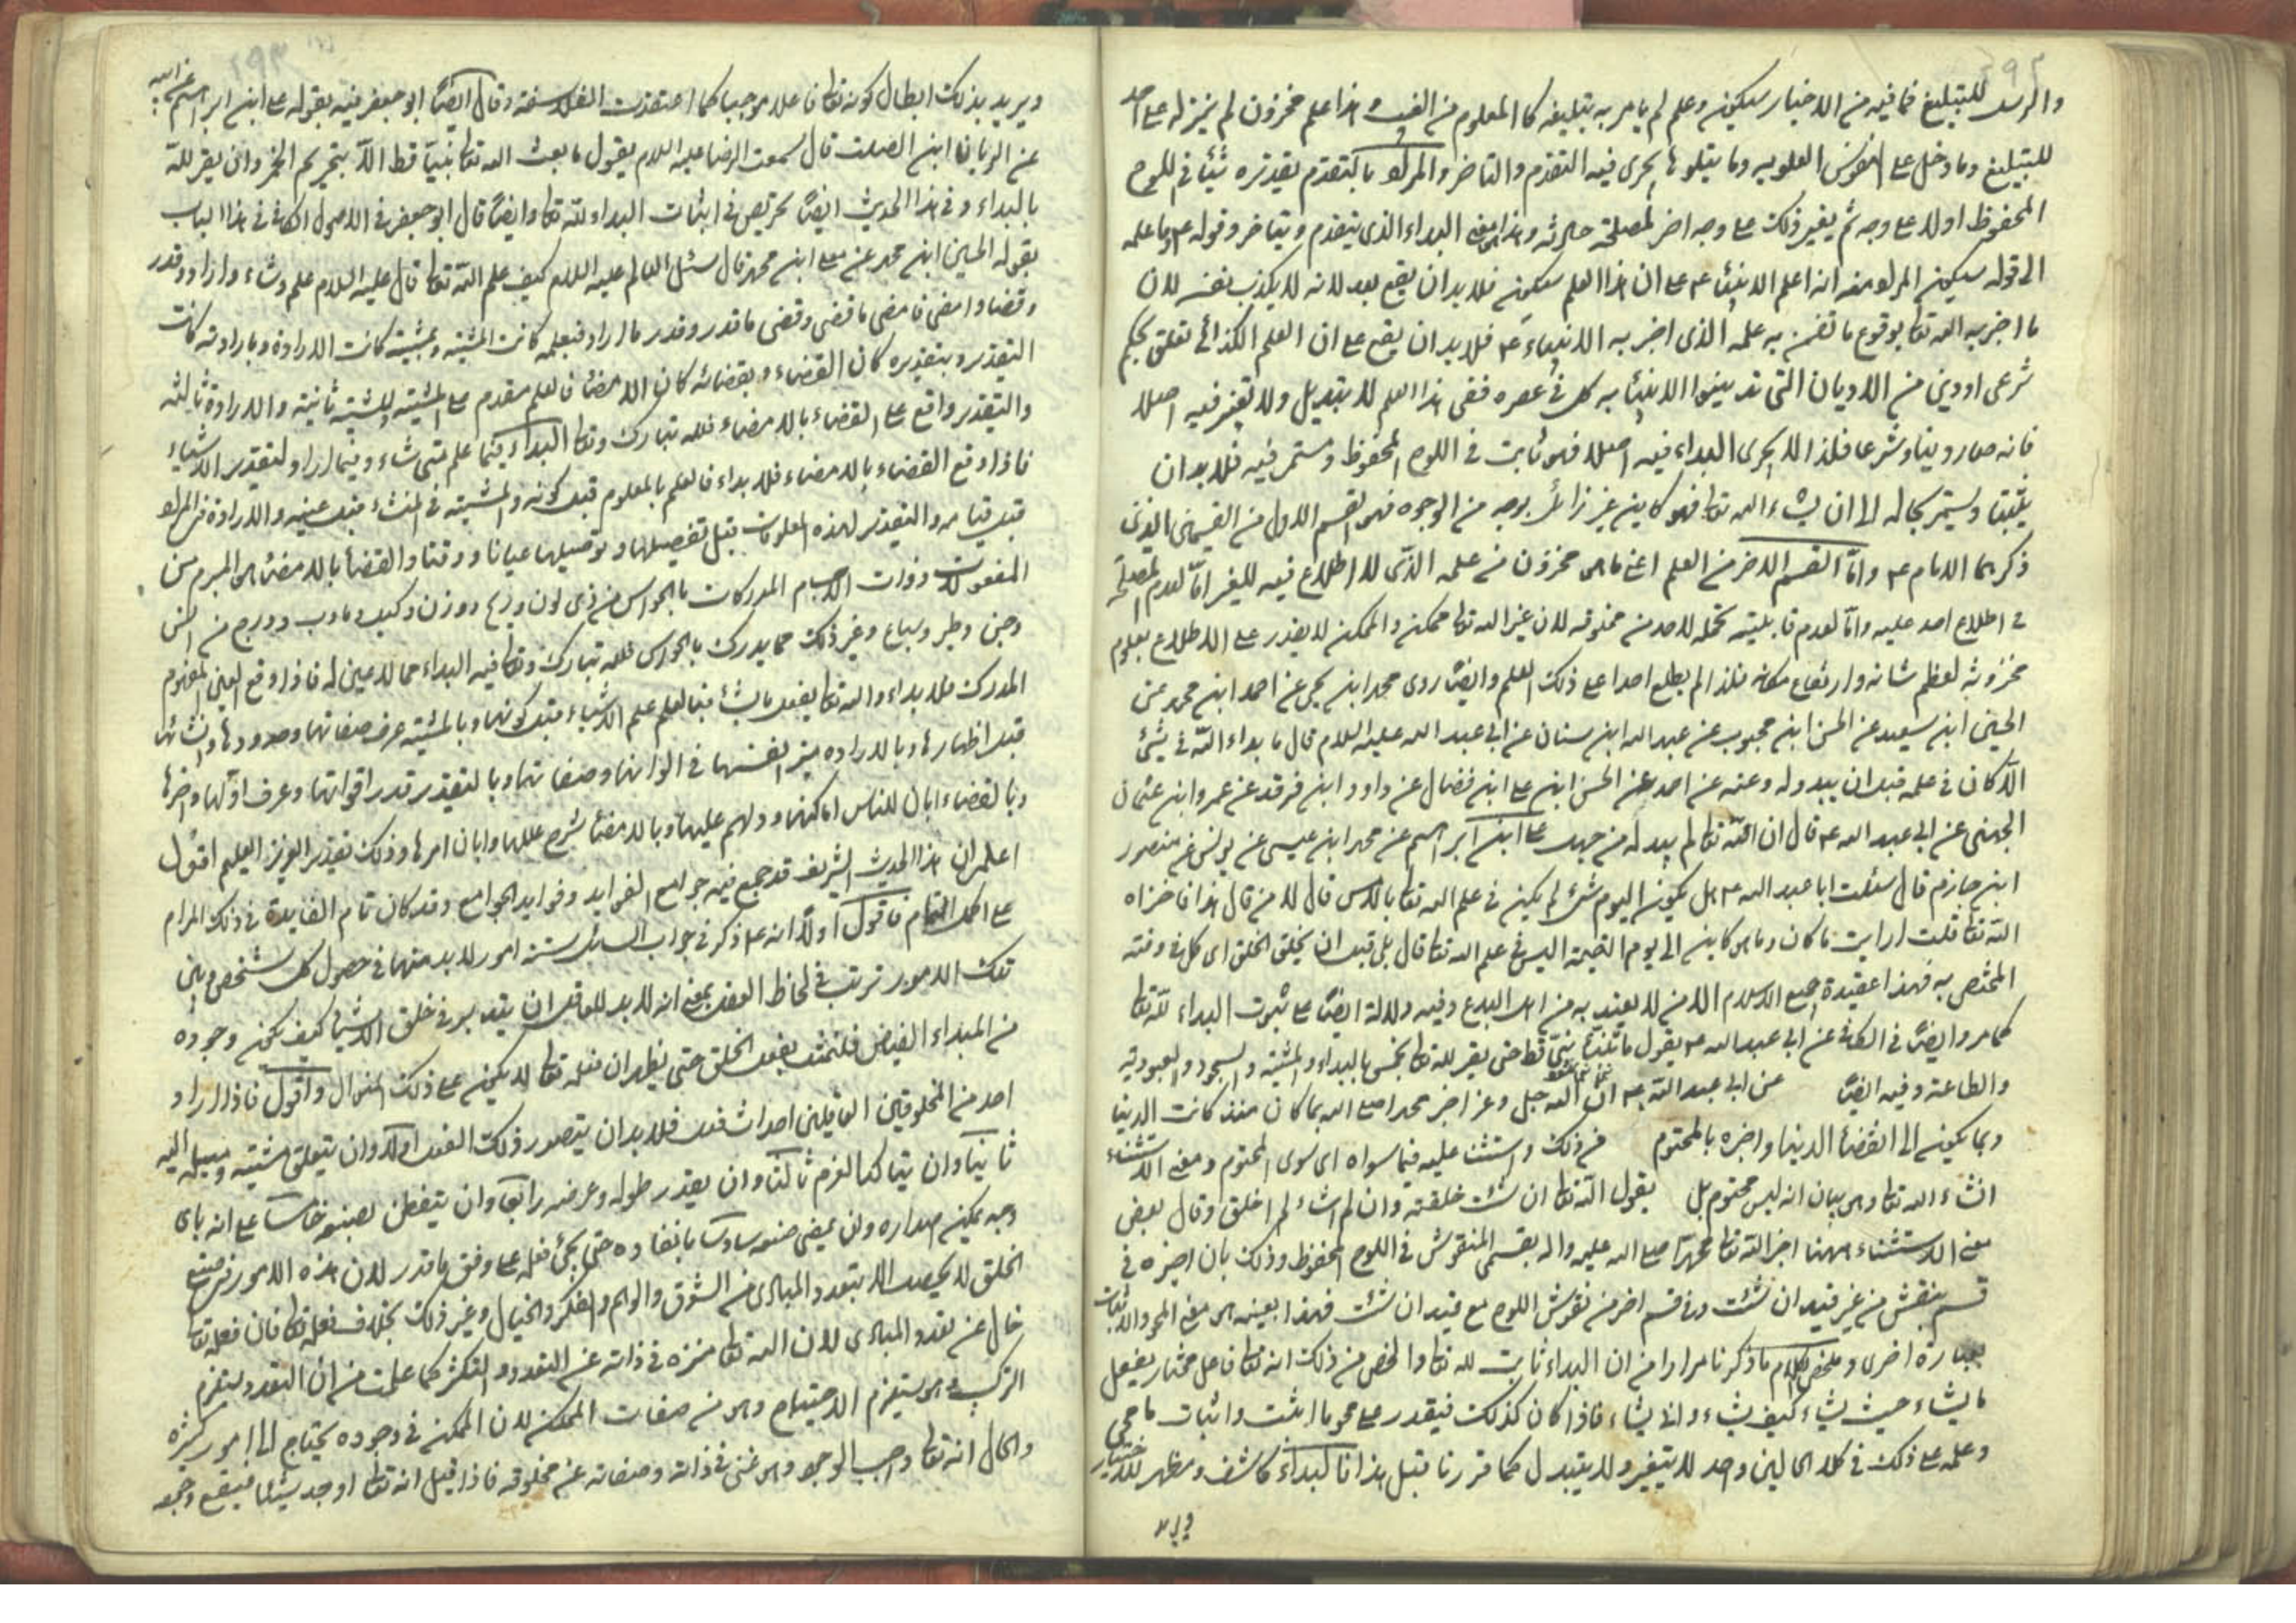 والرسل للتبليغ فما فيه من الاخبار سيكون وعلم لم يامر به بتبليغه كالمعلوم من الغيب وهذا علم مخزون لم ينزله على احد
للتبليغ وما دخل على النفوس العلوية وما يتلوها يجرى فيه التقدم والتاخر والمراد بالتقدم تقديره شيئا في اللوح
المحفوظ اولا على وجه ثم يغير ذلك على وجه اخر لمصلحة حادثة وهذا معنى البداء الذى يتقدم ويتاخر وقوله ع وما علمه
الى قوله سيكون المراد منه انه اعلم الانبياء ع على ان هذا العلم سيكون فلا بد ان يقع بعد لانه لا يكذب نفسه لان
ما اخبر به الله تعالى بوقوع ما تضمن به علمه الذى اخبر به الانبياء ع فلا بد ان يقع على ان العلم الكذائى تعلق بحكم
شرعى او دين من الاديان التى تدينوا الانبياء به كل فى عصره ففى هذا العلم لا تبديل ولا تغير فيه اصلا
فانه صار دينا وشرعا فلذا لا يجرى البداء فيه اصلا فهو ثابت فى اللوح المحفوظ ومستمر فيه فلا بد ان
يثبت ويستمر بحاله الى ان يشاء الله تعالى فهو كاين غير زائل بوجه من الوجوه فهو القسم الاول من القسمين الذين
ذكرهما الامام ع واما القسم الاخر من العلم اعنى ما هو مخزون من علمه الذى لا اطلاع فيه للغير اما لعدم المصلحة
فى اطلاع احد عليه واما لعدم قابلية تحمله لاحد من مخلوقه لان غير الله تعالى ممكن والممكن لا يقدر على الاطلاع بعلوم
مخزونة لعظم شانه وارتفاع مكانه فلذا لم يطلع احدا على ذلك العلم وايضا روى محمد ابن يحيى عن احمد ابن محمد عن
الحسين ابن سعيد عن الحسن ابن محبوب عن عبد الله ابن سنان عن ابى عبد الله عليه السلام قال ما بداء الله فى شئ
الا كان فى علمه قبل ان يبدو له وعنه عن احمد عن الحسن ابن على ابن فضال عن داود ابن فرقد عن عمرو ابن عثمان
الجهنى عن ابى عبد الله ع قال ان الله تعالى لم يبد له من جهل على ابن ابراهيم عن محمد ابن عيسى عن يونس عن منصور
ابن حازم قال سئلت ابا عبد الله ع هل يكون اليوم شئ لم يكن فى علم الله تعالى بالامس قال لا من قال هذا فاخزاه
الله تعالى قلت ارايت ما كان وما هو كاين الى يوم القيمة اليس فى علم الله تعالى قال بلى قبل ان يخلق الخلق اى كل فى وقته
المختص به فهذا عقيدة جميع الاسلام الا من لا يعتد به من اهل البدع وفيه دلالة ايضا على ثبوت البداء لله تعالى
كما مر وايضا فى الكافى عن ابى عبد الله ع يقول ما تنبأ نبى قط حتى يقر لله تعالى بخمس بالبداء والمشية والسجود والعبودية
والطاعة وفيه ايضا عن ابى عبد الله ع ان الله جل وعز اخبر محمدا صلى الله بما كان منذ كانت الدنيا
وبما يكون الى انقضاء الدنيا واخبره بالمحتوم من ذلك واستثنى عليه فيما سواه اى سوى المحتوم ومعنى الاستثناء
انشاء الله تعالى وهو بيان انه ليس محتوم بل يقول الله تعالى ان شئت خلقته وان لم اشاء لم اخلق وقال بعض
معنى الاستثناء ههنا اخبر الله تعالى محمدا صلى الله عليه واله بقسمى المنقوش فى اللوح المحفوظ وذلك بان اخبره فى
قسم بنقش من غير قيد ان شئت وفى قسم اخر من نقوش اللوح مع قيد ان شئت فهذا بعينه هو معنى المحو والاثبات
بعبارة اخرى وملخص الكلام ما ذكرنا مرارا من ان البداء ثابت لله تعالى والملخص من ذلك انه تعالى فاعل مختار يفعل
ما يشاء حيث يشاء كيف يشاء وانى يشاء فاذا كان كذلك فيقدر على محو ما اثبت واثبات ما محى
وعلمه على ذلك فى كلا الحالين واحد لا يتغير ولا يتبدل كما قررنا قبل هذا فالبداء كاشف ومظهر للاختيار
ويريد بذلك ابطال كونه تعالى فاعلا موجبا كما اعتقدت الفلاسفة وقال ايضا ابو جعفر فيه بقوله على ابن ابراهيم عن ابيه
عن الريان ابن الصلت قال سمعت الرضا عليه السلام يقول ما بعث الله تعالى نبيا قط الا بتحريم الخمر وان يقر لله
بالبداء وفى هذا الحديث ايضا تحريص فى اثبات البداء لله تعالى وايضا قال ابو جعفر فى الاصول الكافى فى هذا الباب
بقوله الحسين ابن محمد عن معلى ابن محمد قال سئل العالم عليه السلام كيف علم الله تعالى قال عليه السلام علم وشاء واراد وقدر
وقضا وامضى فامضى ما قضى وقضى ما قدر وقدر ما اراد فبعلمه كانت المشية وبمشيته كانت الارادة وبارادته كانت
التقدير وبتقديره كان القضاء وبقضائه كان الامضاء فالعلم مقدم على المشية والمشية ثانية والارادة ثالثة
والتقدير واقع على القضاء بالامضاء فلله تبارك وتعالى البداء فيما علم متى شاء وفيما اراد لتقدير الاشياء
فاذا وقع القضاء بالامضاء فلا بداء فالعلم بالمعلوم قبل كونه والمشية فى المنشاء قبل عينه والارادة فى المراد
قبل قيامه والتقدير لهذه المعلومات قبل تفصيلها وتوصيلها عيانا ووقتا والقضاء بالامضاء هو المبرم من
المفعولات ذوات الاجسام المدركات بالحواس من ذى لون وريح ووزن وكيل وما دب ودرج من انس
وجن وطير وسباع وغير ذلك مما يدرك بالحواس فلله تبارك وتعالى فيه البداء مما لا عين له فاذا وقع العين المفهوم
المدرك فلا بداء والله تعالى يفعل ما يشاء فبالعلم علم الاشياء قبل كونها وبالمشية عرف صفاتها وحدودها وانشائها
قبل اظهارها وبالارادة ميز انفسها فى الوانها وصفاتها وبالتقدير قدر اقواتها وعرف اولها واخرها
وبالقضاء ابان للناس اماكنها ودلهم عليها وبالامضاء شرح عللها وابان امرها وذلك تقدير العزيز العليم اقول
اعلم ان هذا الحديث الشريف قد جمع فيه جوامع الفرايد وفوايد الجوامع وقد كان تام الفايدة فى ذلك المرام
على اكمل النظام فاقول اولا انه ع ذكر فى جواب السائل ستة امور لا بد منها فى حصول كل شخص وبين
تلك الامور ترتب فى لحاظ العقل بمعنى انه لا بد للعاقل ان يتدبر فى خلق الاشياء كيف يمكن وجوده
من المبداء الفياض فلنمثل بفعل الخلق حتى يظهر ان فعله تعالى لا يكون على ذلك المنوال واقول فاذا اراد
احد من المخلوقين العاقلين احداث فعل فلا بد ان يتصور ذلك الفعل اولا وان يتعلق مشيته وميله اليه
ثانيا وان يتاكد العزم ثالثا وان يقدر طوله وعرضه رابعا وان يتفطن لصنعه خامسا على انه باى
وجه يمكن اصداره وان يمضى صنعه سادسا بانفاده حتى يجئ فعله على وفق ما قدر لان هذه الامور فى صنع
الخلق لا يحصل الا بتعدد المبادى من الشوق والوهم والفكر والخيال وغير ذلك بخلاف فعله تعالى فان فعله تعالى
خال عن تعدد المبادى لان الله تعالى منزه فى ذاته عن التعدد والتكثر كما علمت من ان التعدد يستلزم
التركيب وهو يستلزم الاحتياج وهو من صفات الممكن لان الممكن فى وجوده يحتاج الى امور كثيرة
والحال انه تعالى واجب الوجود وهو غنى فى ذاته وصفاته عن مخلوقه فاذا قيل انه تعالى اوجد شيئا فيقع وجمعه